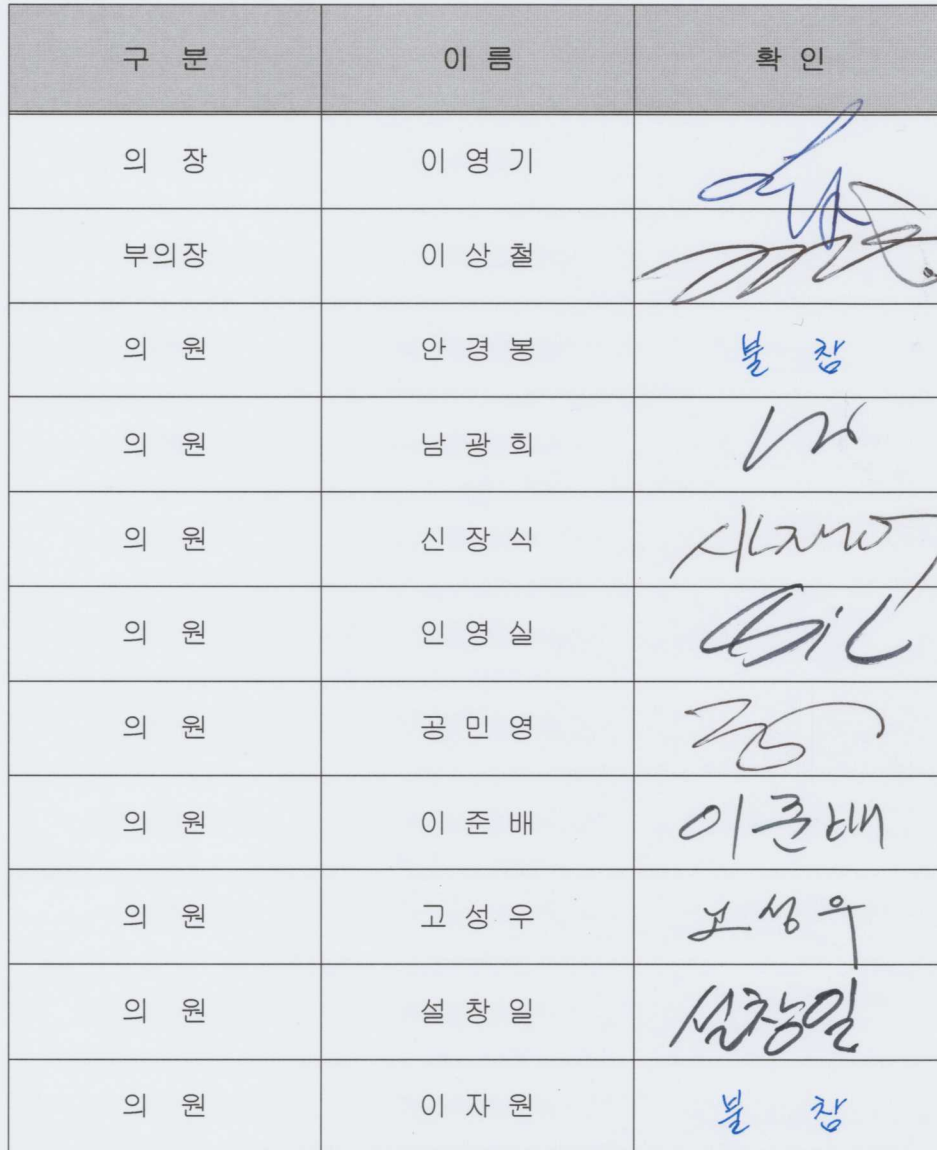 구 분 이 름 확 인
의 장 이 영 기
부의장 이 상 철
의 원 안 경 봉 불 참
의 원 남 광 희
의 원 신 장 식
의 원 인 영 실
의 원 공 민 영
의 원 이 준 배 이준배
의 원 고 성 우 고성우
의 원 설 창 일 설창일
의 원 이 자 원 불 참